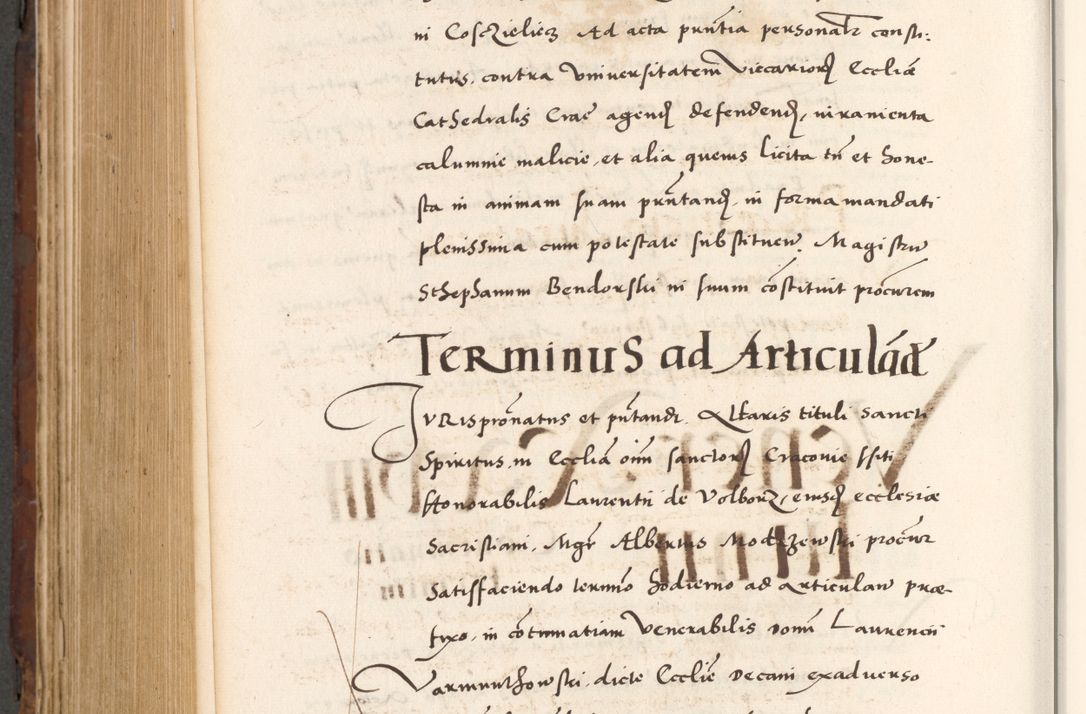 ni Cosczielicz Ad acta pñtia personalr consti:
tutus, contra Vniuersitatem Viccarior Eccliæ
Cathedralis Crac̃ agend defendend, iuramenta
calumnie malicie, et alia queuis licita tñ et hone-
sta in animam suam prñtand, in forma mandati
plenissima cum potestate substituen̄. Magistrũ
Sthephanum Bendorski in suum cõstituit procurem
Terminus ad Articulãd
Juris prõnatus et pñtandi. Altaris tituli sancti
Spiritus, in Ecclia oim sanctor Cracouie ssiti
Honorabilis Laurentii de Volborz, eiusd ecclesiæ
Sacristiani, Mgr̃ Albertus Modrzewski procur
Satisfaciendo termio hodierno ad articulan præ-
fixo, in cõtumatiam Venerabilis Domi Laurencii
Varmuthowski, dicte Ecclie Decani exaduerso